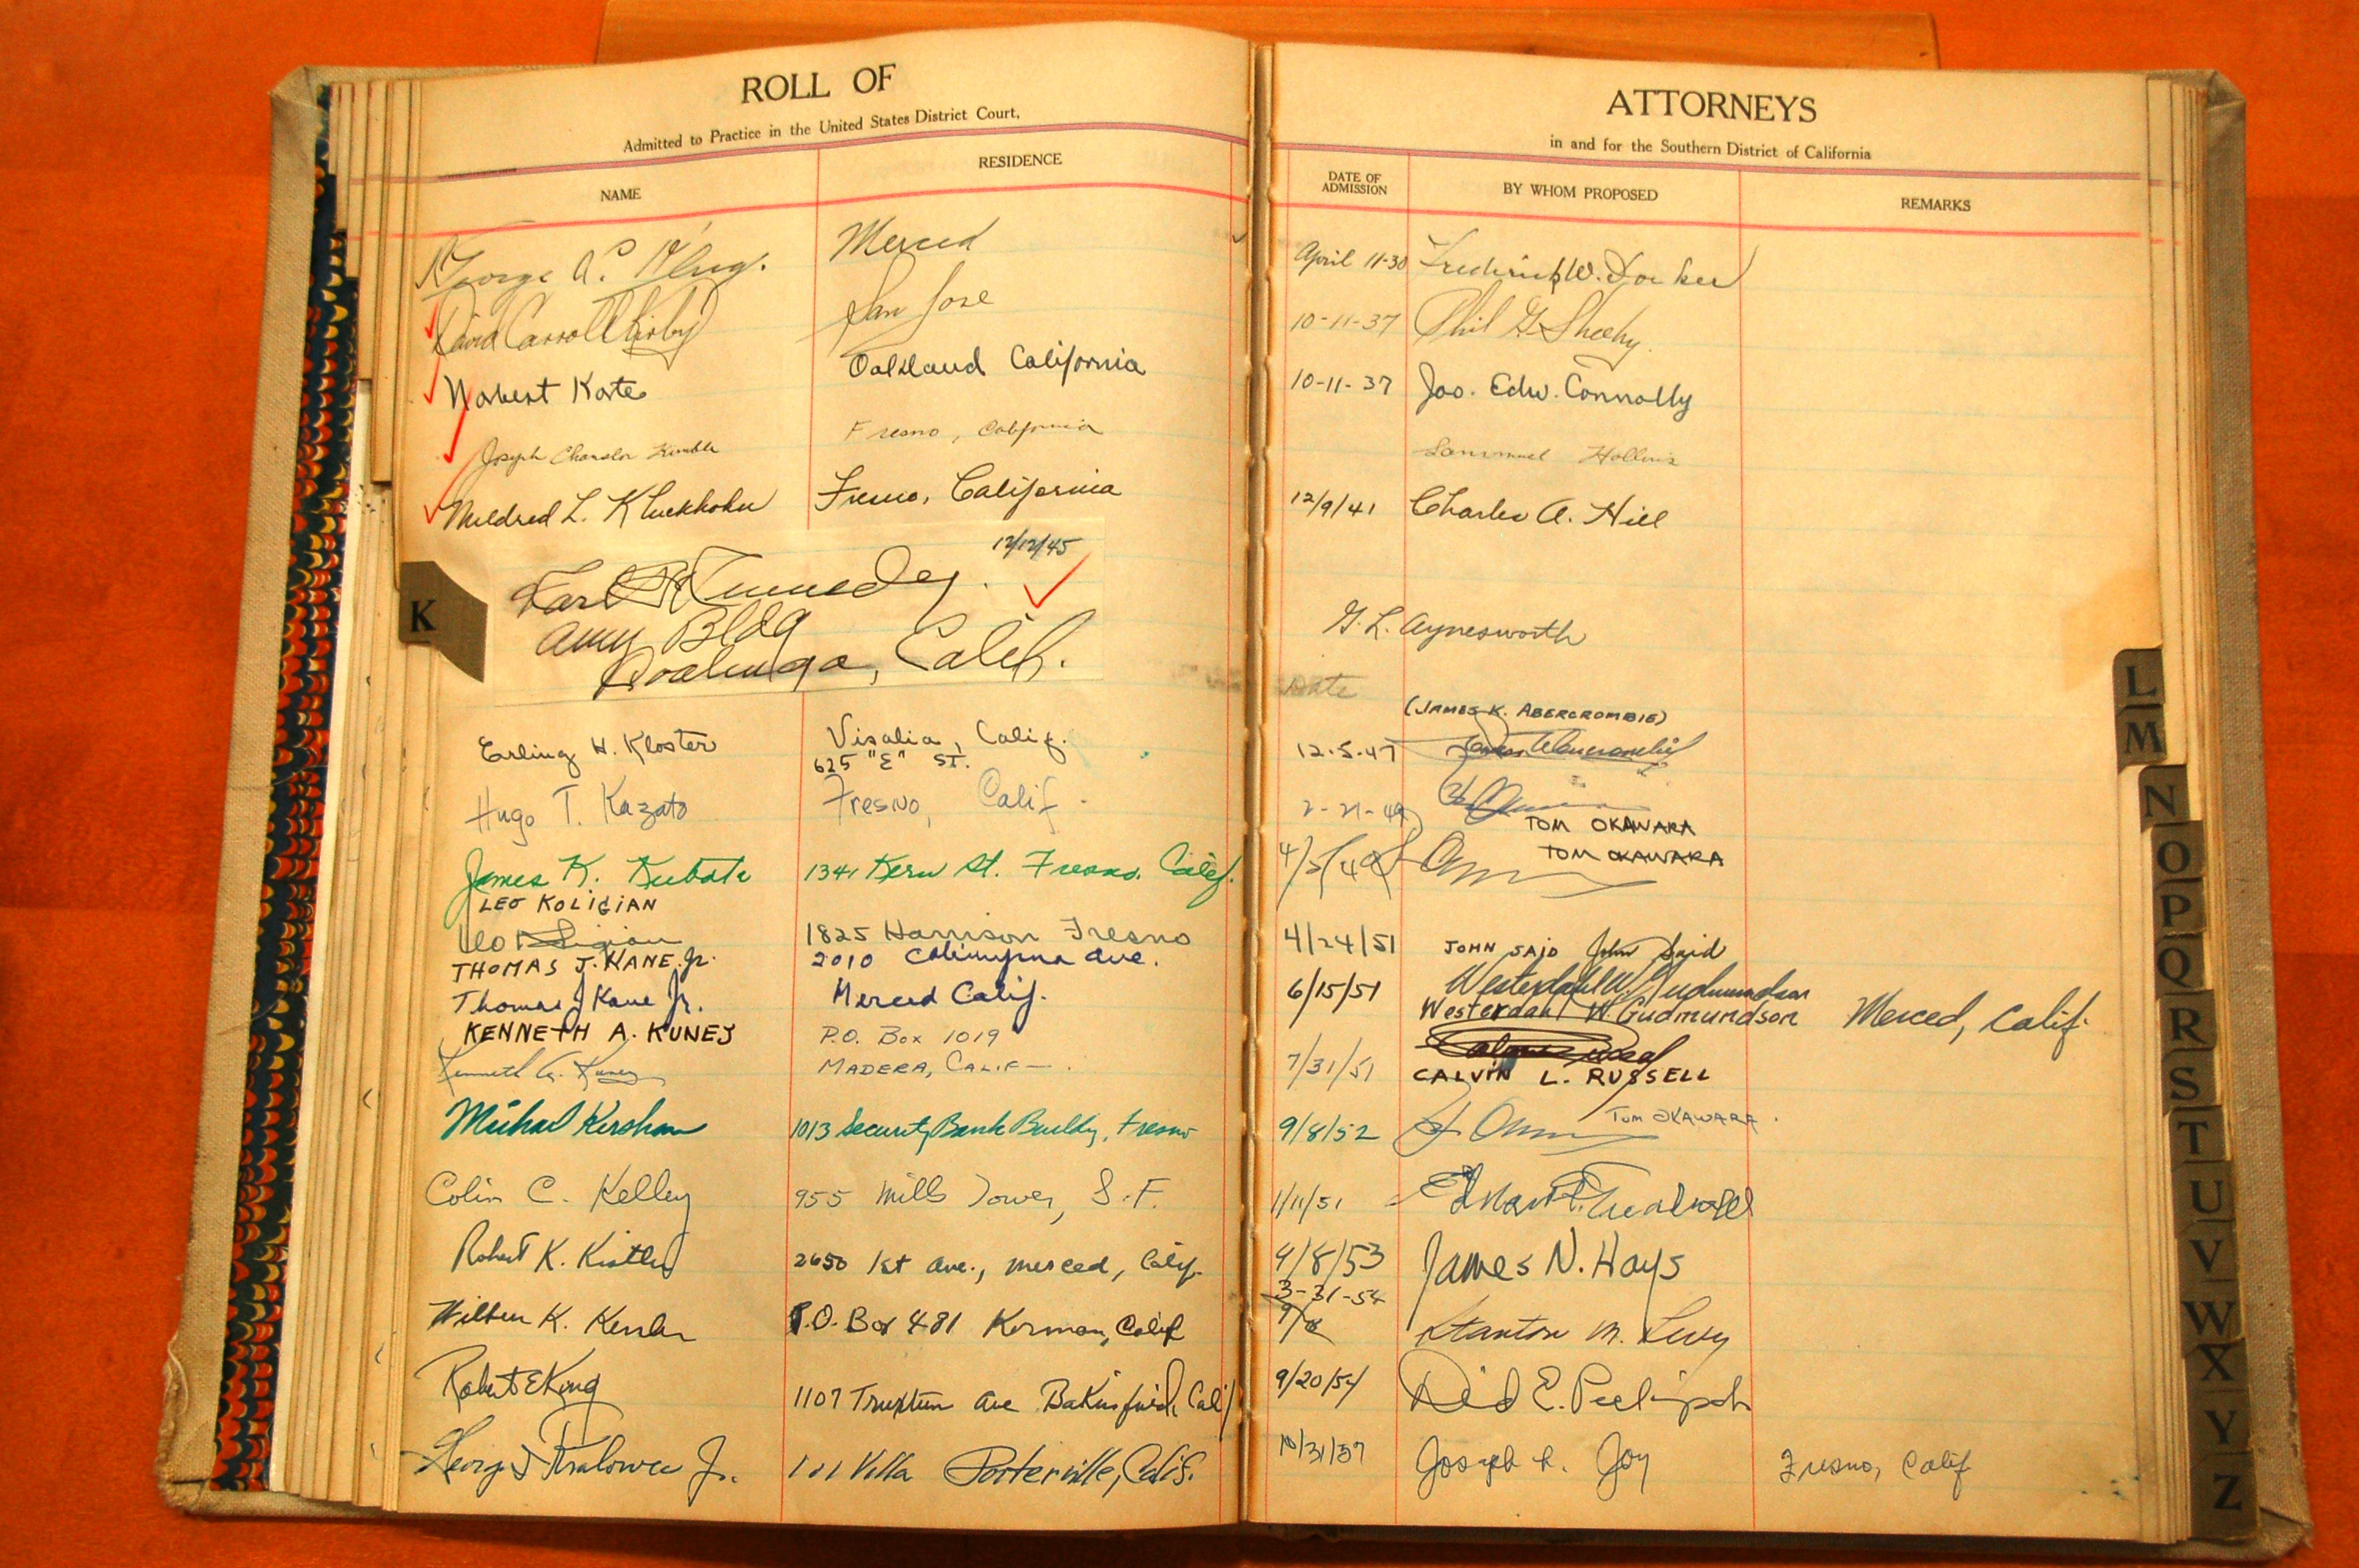 ROLL OF
Admitted to Practice in the United States District Court,
NAME
RESIDENCE
George
Merced
David Carroll Kirby
San Jose
Norbert Korte
Oakland California
Joseph Chanslor Kimble
Fresno, California
Mildred L. Kluckhohn
Fresno, California
12/12/45
Kennedy.
Bldg
Coalinga, Calif.
K
Erling H. Kloster
Visalia, Calif.
625 "E" ST.
Hugo T. Kazato
Fresno, Calif.
James K. Kubota
1341 Kern St. Fresno. Calif.
LEO KOLIGIAN
Leo Koligian
1825 Harrison Fresno
THOMAS J. KANE, Jr.
2010 Calimyrna Ave.
Thomas J Kane Jr.
Merced Calif.
KENNETH A. KUNEY
P.O. Box 1019
Kenneth A. Kuney
MADERA, CALIF.
Michael Kershaw
1013 Security Bank Building, Fresno
Colin C. Kelley
955 Mills Tower, S.F.
Robert K. Kistler
2650 1st Ave., Merced, Calif.
K.
P.O. Box 481 Kerman, Calif
Robert E King
1107 Truxtun Ave Bakersfield, Calif
George Jr.
Villa Porterville, Calif.
ATTORNEYS
in and for the Southern District of California
DATE OF ADMISSION
BY WHOM PROPOSED
REMARKS
April 11-30 Frederick W. Docker
10-11-37 Phil G. Sheehy.
10-11-37 Jos. Edw. Connolly
Hollins
12/9/41 Charles A. Hill
G. L. Aynesworth
Date
(JAMES K. ABERCROMBIE)
12-5-47
2-21-49
TOM OKAWARA
TOM OKAWARA
4/24/51 JOHN SAID John Said
6/15/51 Westerdahl W. Gudmundson
Westerdahl W. Gudmundson Merced, Calif.
7/31/51
CALVIN L. RUSSELL
9/8/52 TOM OKAWARA.
1/11/51
9/8/53 James N. Hays
3-31-54
Stanton M. Levy
9/20/54
10/31/57 Joseph L. Joy Fresno, Calif
L
M
N
O
P
Q
R
S
T
U
V
W
X
Y
Z